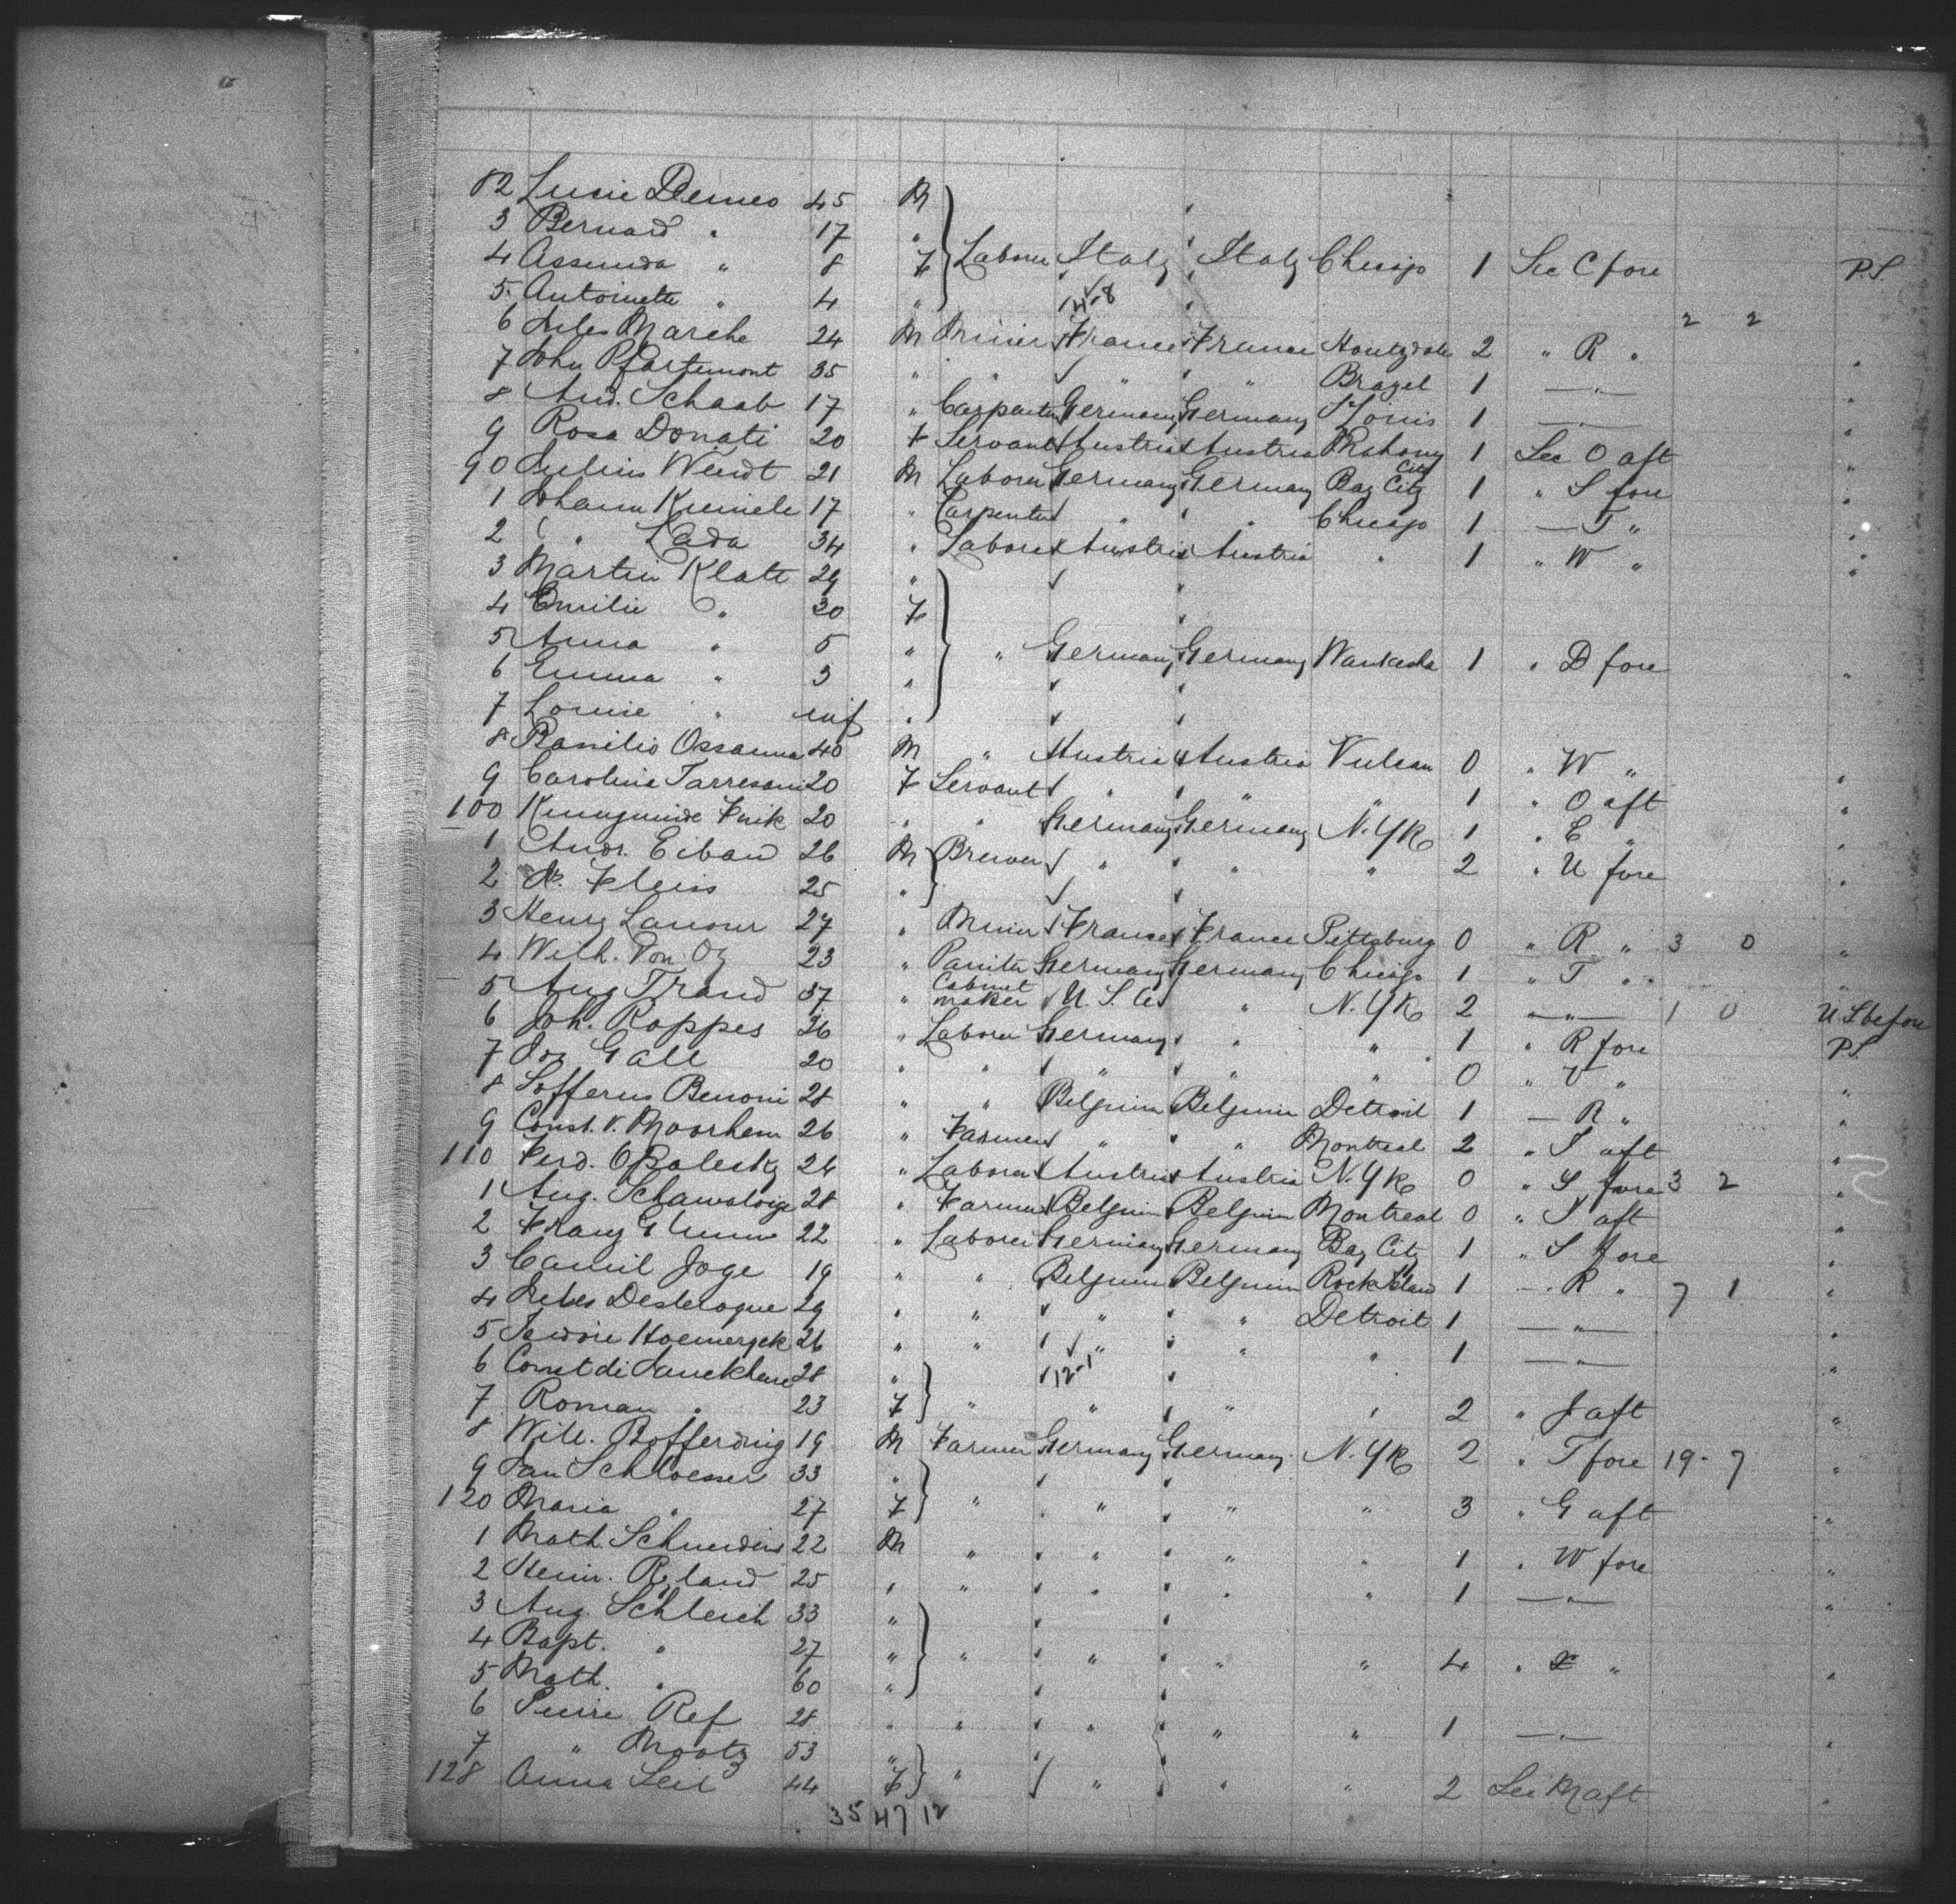 82 Lucie Demeo 45 M
3 Bernard " 17 "
4 Assunda " 8 F Laborer Italy Italy Chicago 1 Sec C fore P.S.
5 Antoinette " 4 " 14-8
2 2
6 Jules Marche 24 M Miner France France Houtzdale 2 " R " "
7 John 35 " " " " Brazel 1 — " — "
8 And. Schaab 17 " Carpenter Germany Germany St Louis 1 — " — "
9 Rosa Donati 20 F Servant Austria Austria Mahony City 1 Sec O aft "
90 Julius Wendt 21 M Laborer Germany Germany Bay City 1 " S fore "
1 Johann 17 " Carpenter " " Chicago 1 — T " "
2 " Lada 34 " Laborer Austria Austria " 1 " W " "
3 Martin Klatt 29 "
4 Emilie " 30 F
5 Anna " 5 " " Germany Germany Waukesha 1 " D fore "
6 Emma " 3 "
7 Louise " inf "
8 Ossanna 40 M " Austria Austria Vulcan 0 " W " "
9 Carolina Tarresani 20 F Servant " " " 1 " O aft "
100 Kunygunde 20 " " Germany Germany N.Yk 1 " E " "
1 Andr. Eiban 26 M Brewer " " " 2 " U fore "
2 Fleiss 25 "
3 Henry Lanour 27 " Miner France France Pittsburg 0 " R " 3 0 "
4 Wilh. Von Oy 23 " Painter Germany Germany Chicago 1 " T " "
5 Aug Trand 37 " Cabinet maker U.S.A " N.Yk 2 — " — 1 0 U.S before
6 Joh. Roppes 26 " Laborer Germany " " 1 " R fore P.S.
7 Jos Gall 20 " " " " " 0 " V " "
8 Sofferus Benoni 28 " " Belgium Belgium Detroit 1 — R " "
9 Const. V. Moorhem 26 " Farmer " " Montreal 2 " S aft "
110 Ferd. 24 " Laborer Austria Austria N.Yk 0 " S fore 3 2 "
1 Aug. 28 " Farmer Belgium Belgium Montreal 0 " S aft "
2 Franz 22 " Laborer Germany Germany Bay City 1 " S fore "
3 Camil Joge 19 " " Belgium Belgium Rock Island 1 — R " 7 1 "
4 Jules Desterogue 29 " " " " Detroit 1 — " — "
5 26 " " " " " 1 — " — "
6 Const di 28 " 12-1
7 Roman " 23 F " " " " 2 " J aft "
8 Will. Bofferding 19 M Farmer Germany Germany N.Yk 2 " T fore 19 - 7 "
9 Jan Schloesser 33 "
120 Maria " 27 F " " " " 3 " G aft "
1 Math. Schneider 22 M " " " " 1 " W fore "
2 Heinr. Ryland 25 " " " " " 1 — " — "
3 Aug. Schleich 33 "
4 Bapt. " 27 " " " " " 4 " " "
5 Math. " 60 "
6 Pierre Ref 28 " " " " " 1 — " — "
7 " Mootz 53 "
128 Anna Leil 44 F " " " " 2 Sec M aft "
35 47 12